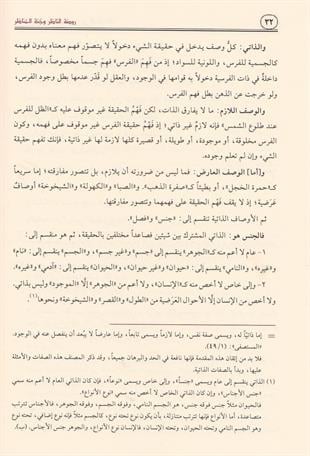 ٣٢ روضة الناظر وجنة المناظر
والذاتي: كلُّ وصف يدخل في حقيقة الشيء دخولاً لا يتصوّر فهم معناه بدون فهمه
كالجسمية للفرس، واللونية للسواد؛ إذ من فَهِمَ «الفرس» فَهِمَ جسماً مخصوصاً، فالجسمية
داخلةٌ في ذات الفرسية دخولاً به قوامها في الوجود، والعقل لو قُدّر عدمها بطل وجود الفرس،
ولو خرجت عن الذهن بطل فهم الفرس.
والوصف اللازم: ما لا يفارق الذات، لكن فَهْمُ الحقيقة غير موقوف عليه كـ«الظل للفرس
عند طلوع الشمس» فإنه لازمٌ غير ذاتي؛ إذ فَهْمُ حقيقة الفرس غير موقوف على فهمه، وكون
الفرس مخلوقة، أو موجودة، أو طويلة، أو قصيرة كلها لازمة لها غير ذاتية، فإنك تفهم حقيقة
الشيء وإن لم تعلم وجوده.
و[أما] الوصف العارض: فما ليس من ضرورته أن يلازم، بل تتصور مفارقته؛ إما سريعاً
كـ«حمرة الخجل»، أو بطيئاً كـ«صفرة الذهب». و«الصبا» و«الكهولة» و«الشيخوخة» أوصافٌ
عَرَضية؛ إذ لا يقف فَهْمُ الحقيقة على فهمها وتتصور مفارقتها.
ثم الأوصاف الذاتية تنقسم إلى: «جنس» و«فصل».
فالجنس هو: الذاتي المشترك بين شيئين فصاعداً مختلفين بالحقيقة، ثم هو منقسم إلى:
١ - عام لا أعم منه كـ«الجوهر» ينقسم إلى: «جسم» و«غير جسم»، و«الجسم» ينقسم إلى: «نامٍ»
و«غيره»، و«النامي» ينقسم إلى: «حيوان» و«غير حيوان»، و«الحيوان» ينقسم إلى: «آدمي» و«غيره».
٢ - وإلى خاص لا أخص منه كـ«الإنسان»، ولا أعم من «الجوهر» إلَّا «الموجود» وليس بذاتي.
ولا أخص من الإنسان إلَّا الأحوال العَرَضية من «الطول» و«القصر» و«الشيخوخة» ونحوها(١).
= إما ذاتياً له، ويسمى صفة نفس، وإما لازماً ويسمى تابعاً، وإما عارضاً لا يبعد أن ينفصل عنه في الوجود.
«المستصفى»: (٤٩/١).
فلا بد من إتقان هذه المقدمة فإنها نافعة في الحد والبرهان جميعاً، وقد ذكر المصنف هذه الصفات والأمثلة
عليها، وبدأ بالصفات الذاتية.
(١) الذاتي ينقسم إلى عام ويسمى «جنساً»، وإلى خاص ويسمى «نوعاً»، فإن كان الذاتي العام لا أعم منه سمي
«جنس الأجناس»، وإن كان الذاتي الخاص لا أخص منه سمي «نوع الأنواع».
فالحيوان مثلاً جنس فوقه جنس، وهو النامي، وفوقه الجسم، وفوقه الجوهر، فالأجناس تترتب
متصاعدة، أما الأنواع فإنها تترتب متنازلة، بأن يكون نوع تحته نوع، كالجسم مثلاً فإنه نوع إضافي، تحته نوع
وهو الجسم النامي وتحته الحيوان، وتحته الإنسان، فالإنسان نوع الأنواع، والجوهر جنس الأجناس. (ب).